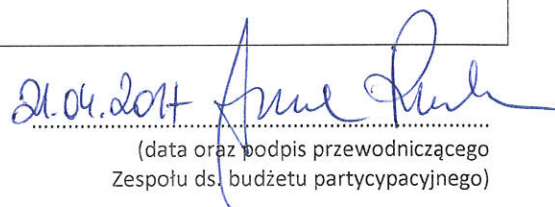 21.04.2017
(data oraz podpis przewodniczącego
Zespołu ds. budżetu partycypacyjnego)